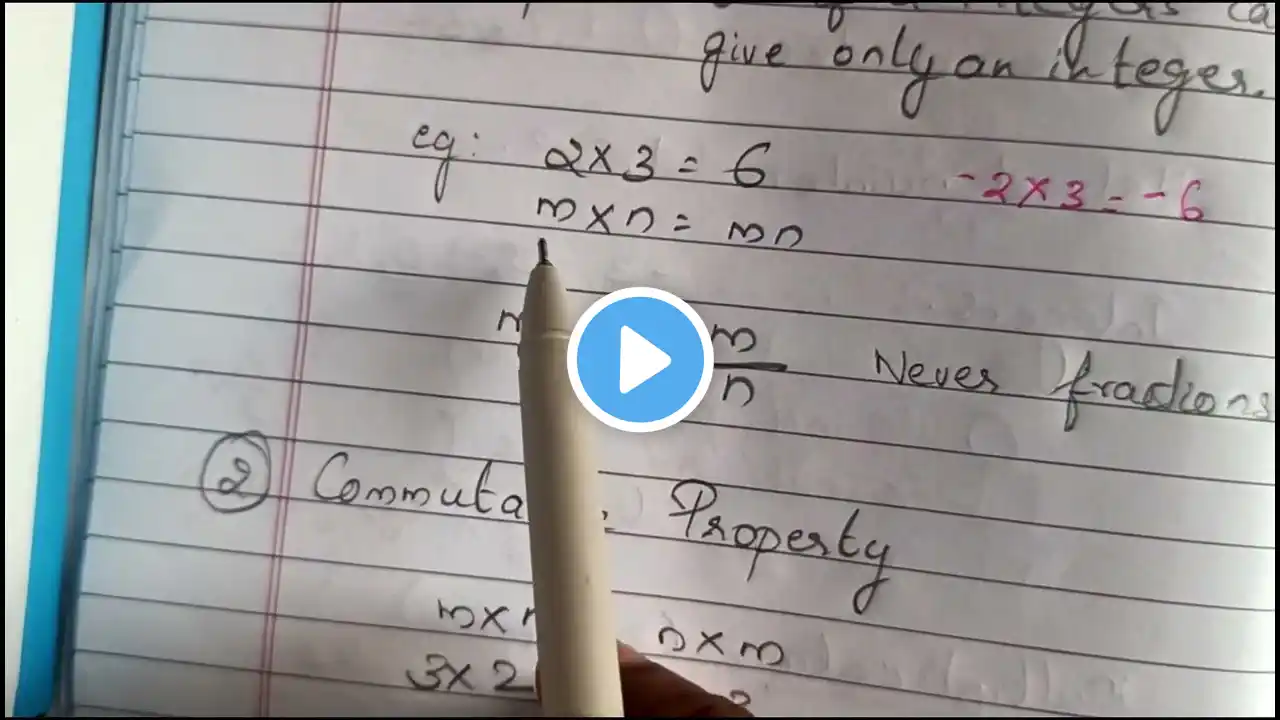 give only an integer.
eg: 2 × 3 = 6 -2 × 3 = -6
m × n = mn
m/n Never fractions
② Property
m × n × m
3 × 2